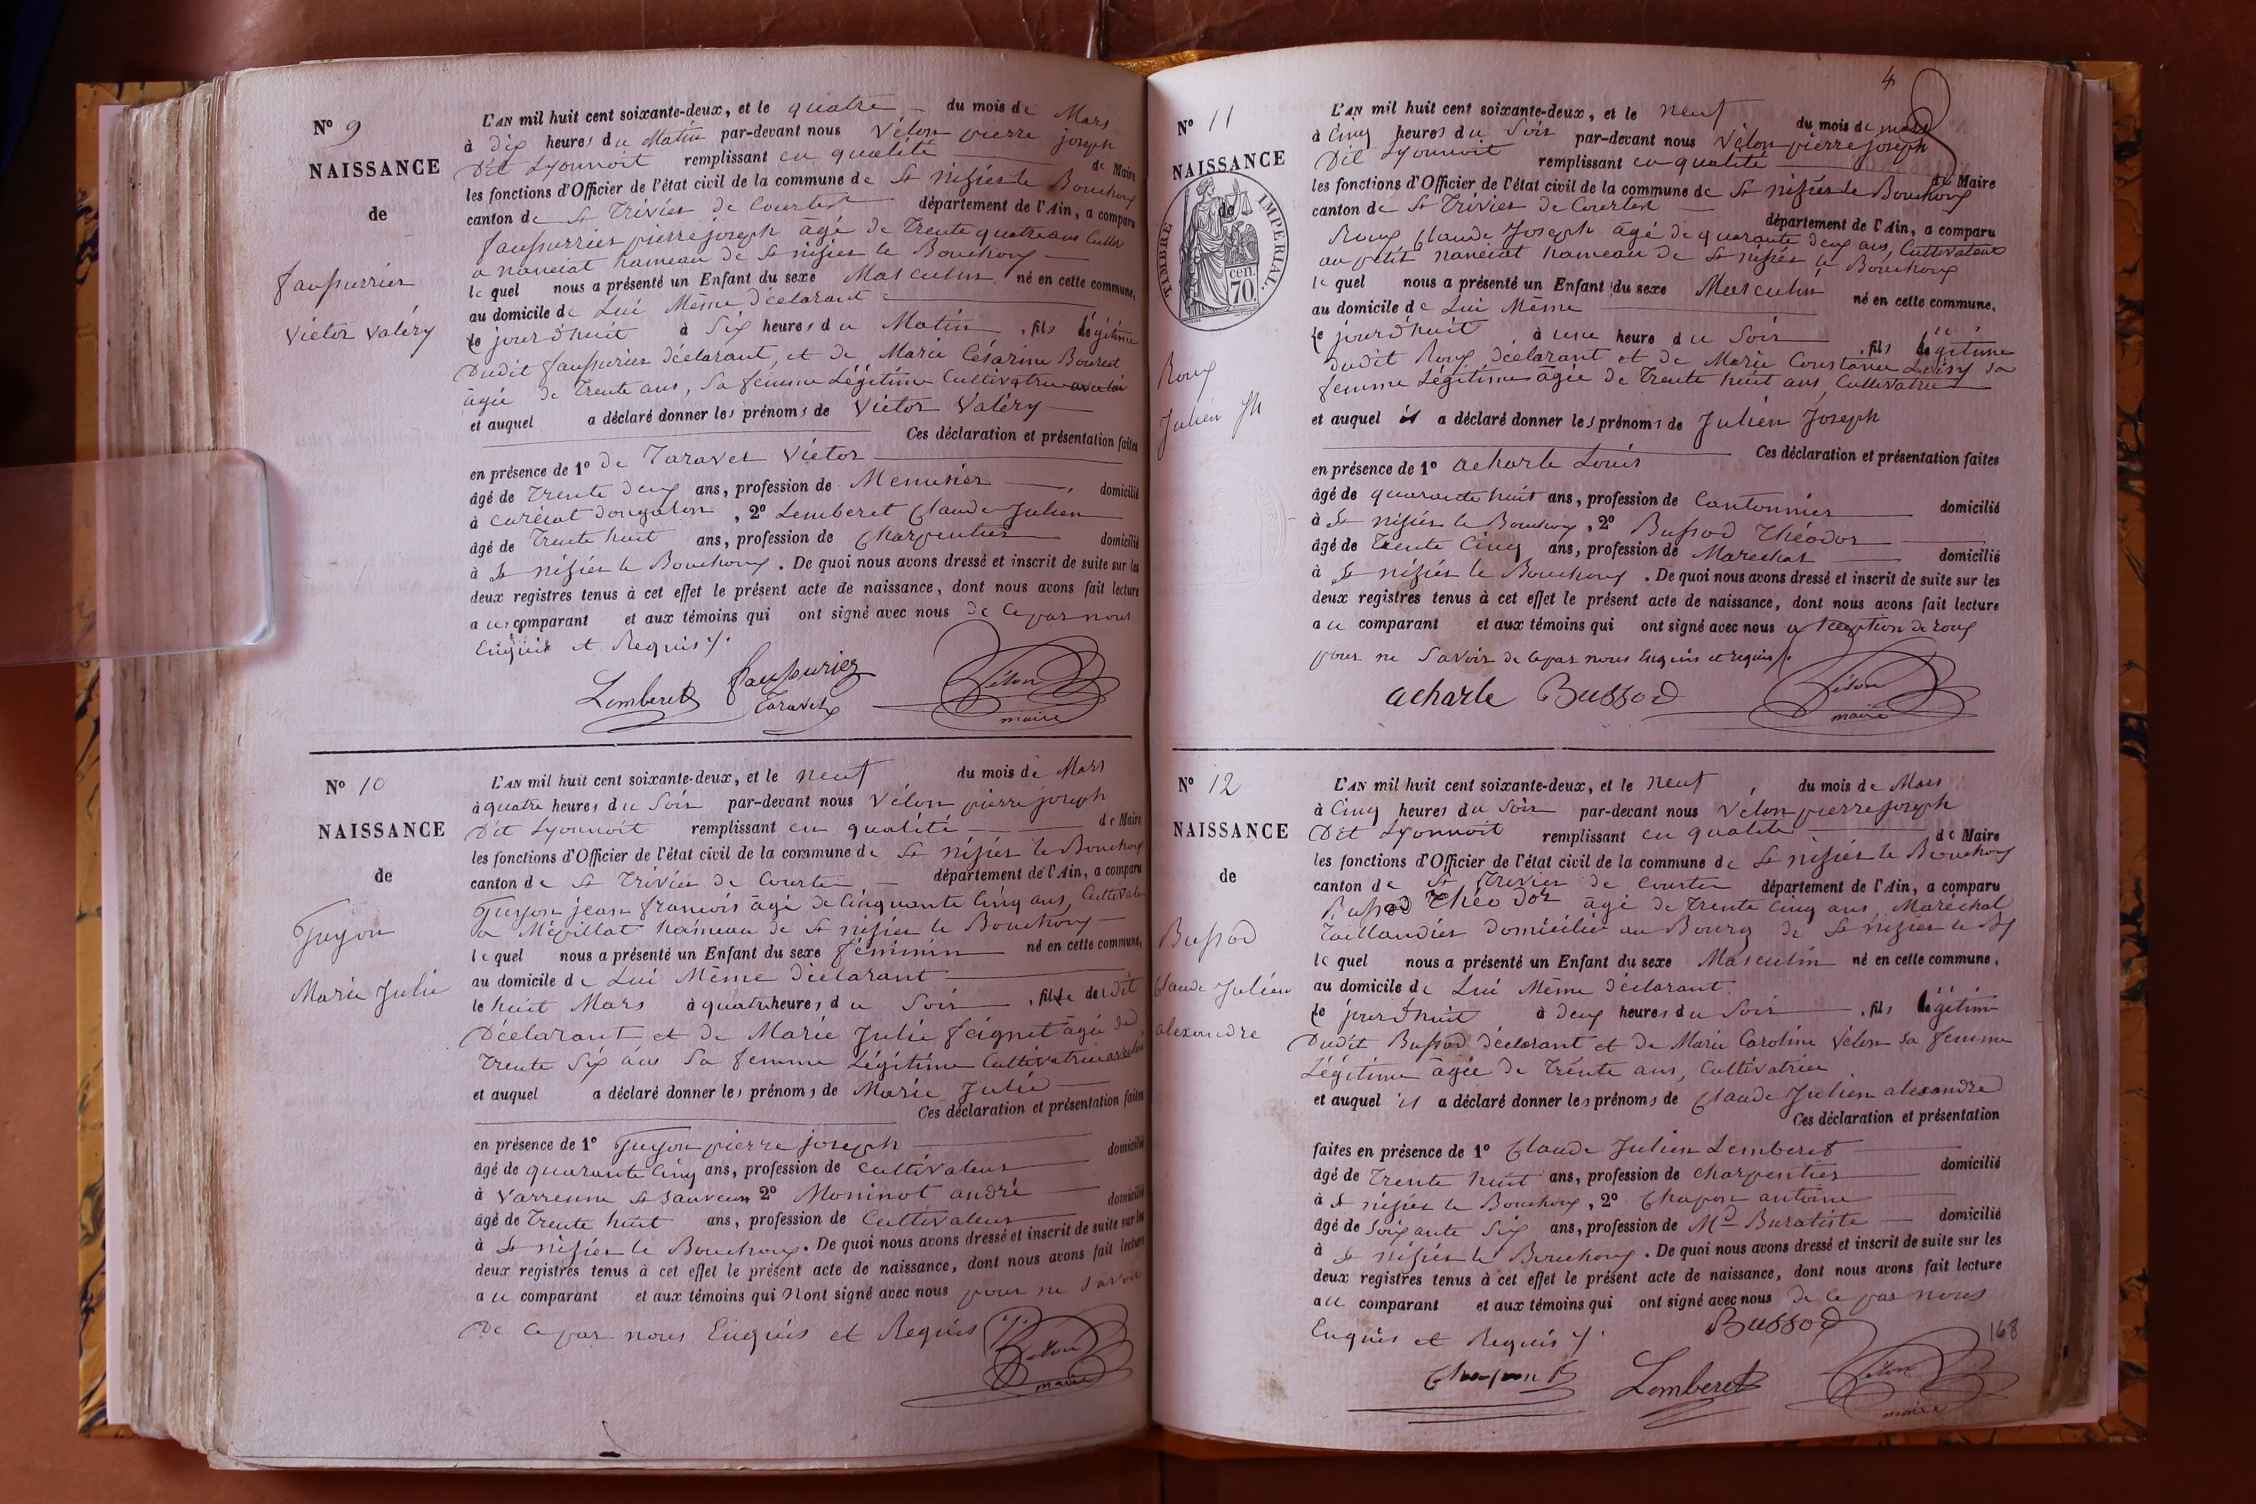 Nº 9
NAISSANCE
de
Faussurrier
Victor Valéry
L'AN mil huit cent soixante-deux, et le quatre du mois de Mars
à dix heures du Matin par-devant nous Vélon pierre joseph
Dit Lyonnoit remplissant en qualité de Maire
les fonctions d'Officier de l'état civil de la commune de St nisier le Bouchoux
canton de St Trivier de Courtes département de l'Ain, a comparu
faussurrier pierre joseph âgé de Trente quatre ans Cultr
a nanciat hameau de St nisier le Bouchoux
lequel nous a présenté un Enfant du sexe Masculin né en cette commune,
au domicile de Lui Même déclarant
le jourd'huit à Six heures du Matin, fils légitime
Dudit faussurier déclarant, et de Marie Césarine
âgée de Trente ans, Sa femme Légitime Cultivatrice avec lui
et auquel a déclaré donner les prénoms de Victor Valéry
Ces déclaration et présentation faites
en présence de 1º de Taravel Victor
âgé de Trente deux ans, profession de Menusier, domicilié
à Curciat dongalon, 2º Lemberet Claude Julien
âgé de Trente huit ans, profession de Charpentier domicilié
à St nisier le Bouchoux. De quoi nous avons dressé et inscrit de suite sur les
deux registres tenus à cet effet le présent acte de naissance, dont nous avons fait lecture
au comparant et aux témoins qui ont signé avec nous de ce par nous
Enquis et Requis
Lemberet faussuriez
Taravel Vélon
maire
Nº 10
NAISSANCE
de
Guyon
Marie Julie
L'AN mil huit cent soixante-deux, et le neuf du mois de Mars
à quatre heures du Soir par-devant nous Vélon pierre joseph
Dit Lyonnoit remplissant en qualité de Maire
les fonctions d'Officier de l'état civil de la commune de St nisier le Bouchoux
canton de St Trivier de Courtes département de l'Ain, a comparu
Guyon jean francois âgé de Cinquante Cinq ans, Cultivateur
a Mépillat hameau de St nisier le Bouchoux
lequel nous a présenté un Enfant du sexe féminin né en cette commune,
au domicile de Lui Même déclarant
le huit Mars à quatre heures du Soir, fille dudit
Déclarant et de Marie Julie feignet âgée de
Trente Six ans Sa femme Légitime Cultivatrice
et auquel a déclaré donner les prénoms de Marie Julie
Ces déclaration et présentation faites
en présence de 1º Guyon pierre joseph
âgé de quarante Cinq ans, profession de Cultivateur domicilié
à Varrenne St Sauveur 2º Moninot andré
âgé de Trente huit ans, profession de Cultivateur domicilié
à St nisier le Bouchoux. De quoi nous avons dressé et inscrit de suite sur les
deux registres tenus à cet effet le présent acte de naissance, dont nous avons fait lecture
au comparant et aux témoins qui n'ont signé avec nous pour ne Savoir
De ce par nous Enquis et Requis
Vélon
maire
4
Nº 11
NAISSANCE
de
TIMBRE IMPERIAL.
70 cen.
Roux
Julien Jh
L'AN mil huit cent soixante-deux, et le neuf du mois de mars
à Cinq heures du Soir par-devant nous Vélon pierre joseph
Dit Lyonnoit remplissant en qualité de Maire
les fonctions d'Officier de l'état civil de la commune de St nisier le Bouchoux
canton de St Trivier de Courtes département de l'Ain, a comparu
Roux Claude Joseph âgé de quarante deux ans, Cultivateur
au petit nanciat hameau de St nisier le Bouchoux
lequel nous a présenté un Enfant du sexe Masculin né en cette commune,
au domicile de Lui Même
le jourd'huit à une heure du Soir, fils légitime
Dudit Roux déclarant et de Marie Constance Loisy sa
femme Légitime âgée de Trente huit ans, Cultivatrice
et auquel il a déclaré donner les prénoms de Julien Joseph
Ces déclaration et présentation faites
en présence de 1º acharle Louis
âgé de quarante huit ans, profession de Cantonnier domicilié
à St nisier le Bouchoux, 2º Bussod Théodor
âgé de Trente Cinq ans, profession de Marechal domicilié
à St nisier le Bouchoux. De quoi nous avons dressé et inscrit de suite sur les
deux registres tenus à cet effet le présent acte de naissance, dont nous avons fait lecture
au comparant et aux témoins qui ont signé avec nous a lexeption de roux
pour ne Savoir de ce par nous Enquis et requis
acharle Bussod Vélon
maire
Nº 12
NAISSANCE
de
Bussod
Claude Julien
alexandre
L'AN mil huit cent soixante-deux, et le neuf du mois de Mars
à Cinq heures du Soir par-devant nous Vélon pierre joseph
Dit Lyonnoit remplissant en qualité de Maire
les fonctions d'Officier de l'état civil de la commune de St nisier le Bouchoux
canton de St Trivier de Courtes département de l'Ain, a comparu
Bussod Théodor âgé de Trente Cinq ans, Maréchal
Taillandier domicilié au Bourg de St nisier le Bx
lequel nous a présenté un Enfant du sexe Masculin né en cette commune,
au domicile de Lui Même déclarant
le jourd'huit à deux heures du Soir, fils légitime
Dudit Bussod déclarant et de Marie Caroline Vélon sa femme
Légitime âgée de Trente ans, Cultivatrice
et auquel il a déclaré donner les prénoms de Claude Julien alexandre
Ces déclaration et présentation
faites en présence de 1º Claude Julien Lemberet
âgé de Trente huit ans, profession de Charpentier domicilié
à St nisier le Bouchoux, 2º Chapon antoine
âgé de Soixante Six ans, profession de Md Buratiste domicilié
à St nisier le Bouchoux. De quoi nous avons dressé et inscrit de suite sur les
deux registres tenus à cet effet le présent acte de naissance, dont nous avons fait lecture
au comparant et aux témoins qui ont signé avec nous de ce par nous
Enquis et Requis
Bussod
168
Chapon Lemberet Vélon
maire